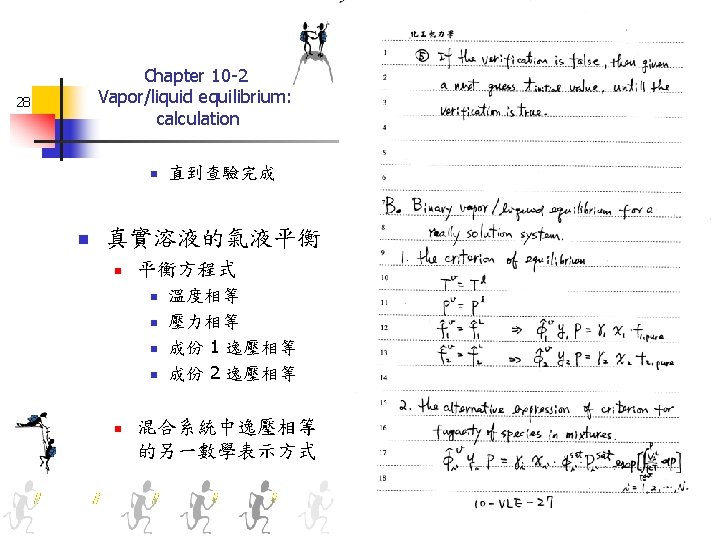 Chapter 10-2
Vapor/liquid equilibrium:
calculation
28
直到查驗完成
真實溶液的氣液平衡
平衡方程式
溫度相等
壓力相等
成份 1 逸壓相等
成份 2 逸壓相等
混合系統中逸壓相等
的另一數學表示方式
化工熱力學
1 ⑤ If the verification is false, then given
2 a next guess T initial value, untill the
3 verification is true.
4
5
6
7 B. Binary vapor/liquid equilibrium for a
8 really solution system.
9 1. the criterion of equilibrium
10 T^v = T^l
11 P^v = P^l
12 f̂₁^v = f̂₁^L ⇒ φ̂₁^v y₁ P = γ₁ x₁ f₁,pure
13 f̂₂^v = f̂₂^L ⇒ φ̂₂^v y₂ P = γ₂ x₂ f₂,pure
14
15 2. the alternative expression of criterion for
16 fugacity of species in mixtures.
17 φ̂ᵢ^v yᵢ P = γᵢ xᵢ φᵢ^sat Pᵢ^sat exp
18 i = 1, 2, ..., N.
10-VLE-27